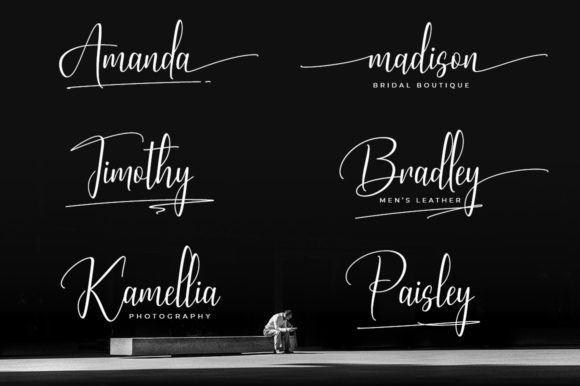 Amanda
madison
BRIDAL BOUTIQUE
Timothy
Bradley
MEN'S LEATHER
Kamellia
PHOTOGRAPHY
Paisley